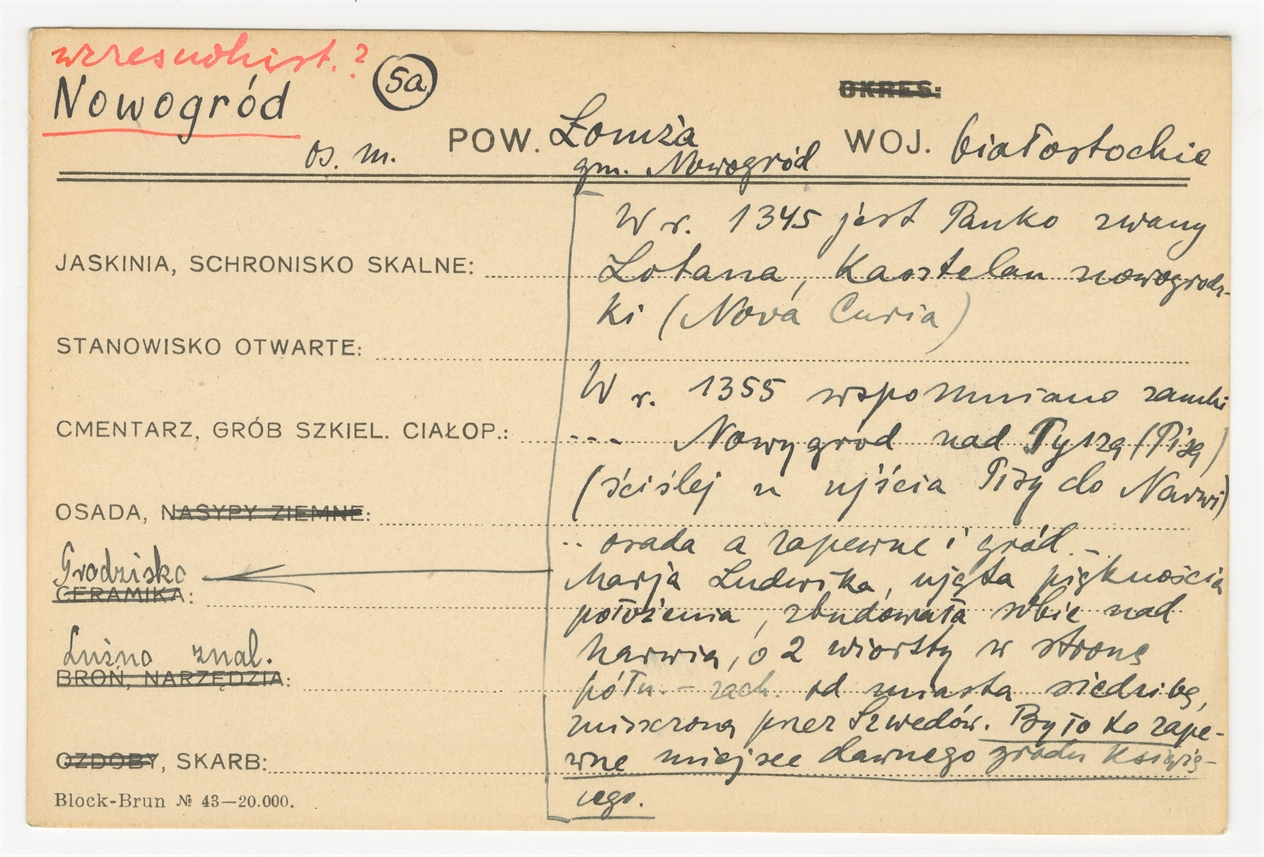 wczesnohist.?
Nowogród
5a
OKRES:
os. m. POW. Łomża WOJ. białostockie
gm. Nowogród
W r. 1345 jest Panko zwany
JASKINIA, SCHRONISKO SKALNE: Lotana, Kasztelan nowogrodz-
ki (Nova Curia)
STANOWISKO OTWARTE:
W r. 1355 wspomniano zamki
CMENTARZ, GRÓB SZKIEL. CIAŁOP.: --- Nowygrod nad Pyszą (Pisą)
(ściślej u ujścia Pisy do Narwi)
OSADA, NASYPY ZIEMNE:
.. osada a zapewne i gród –
Grodzisko
Marja Ludwika, ujęta pięknością
CERAMIKA:
położenia, zbudowała sobie nad
Luźno znal. Narwią, o 2 wiorsty w stronę
BROŃ, NARZĘDZIA: półn.-zach. od miasta siedzibę,
niszczoną przez Szwedów. Było to zape-
OZDOBY, SKARB: wne miejsce dawnego grodu książę-
cego.
Block-Brun № 43—20.000.